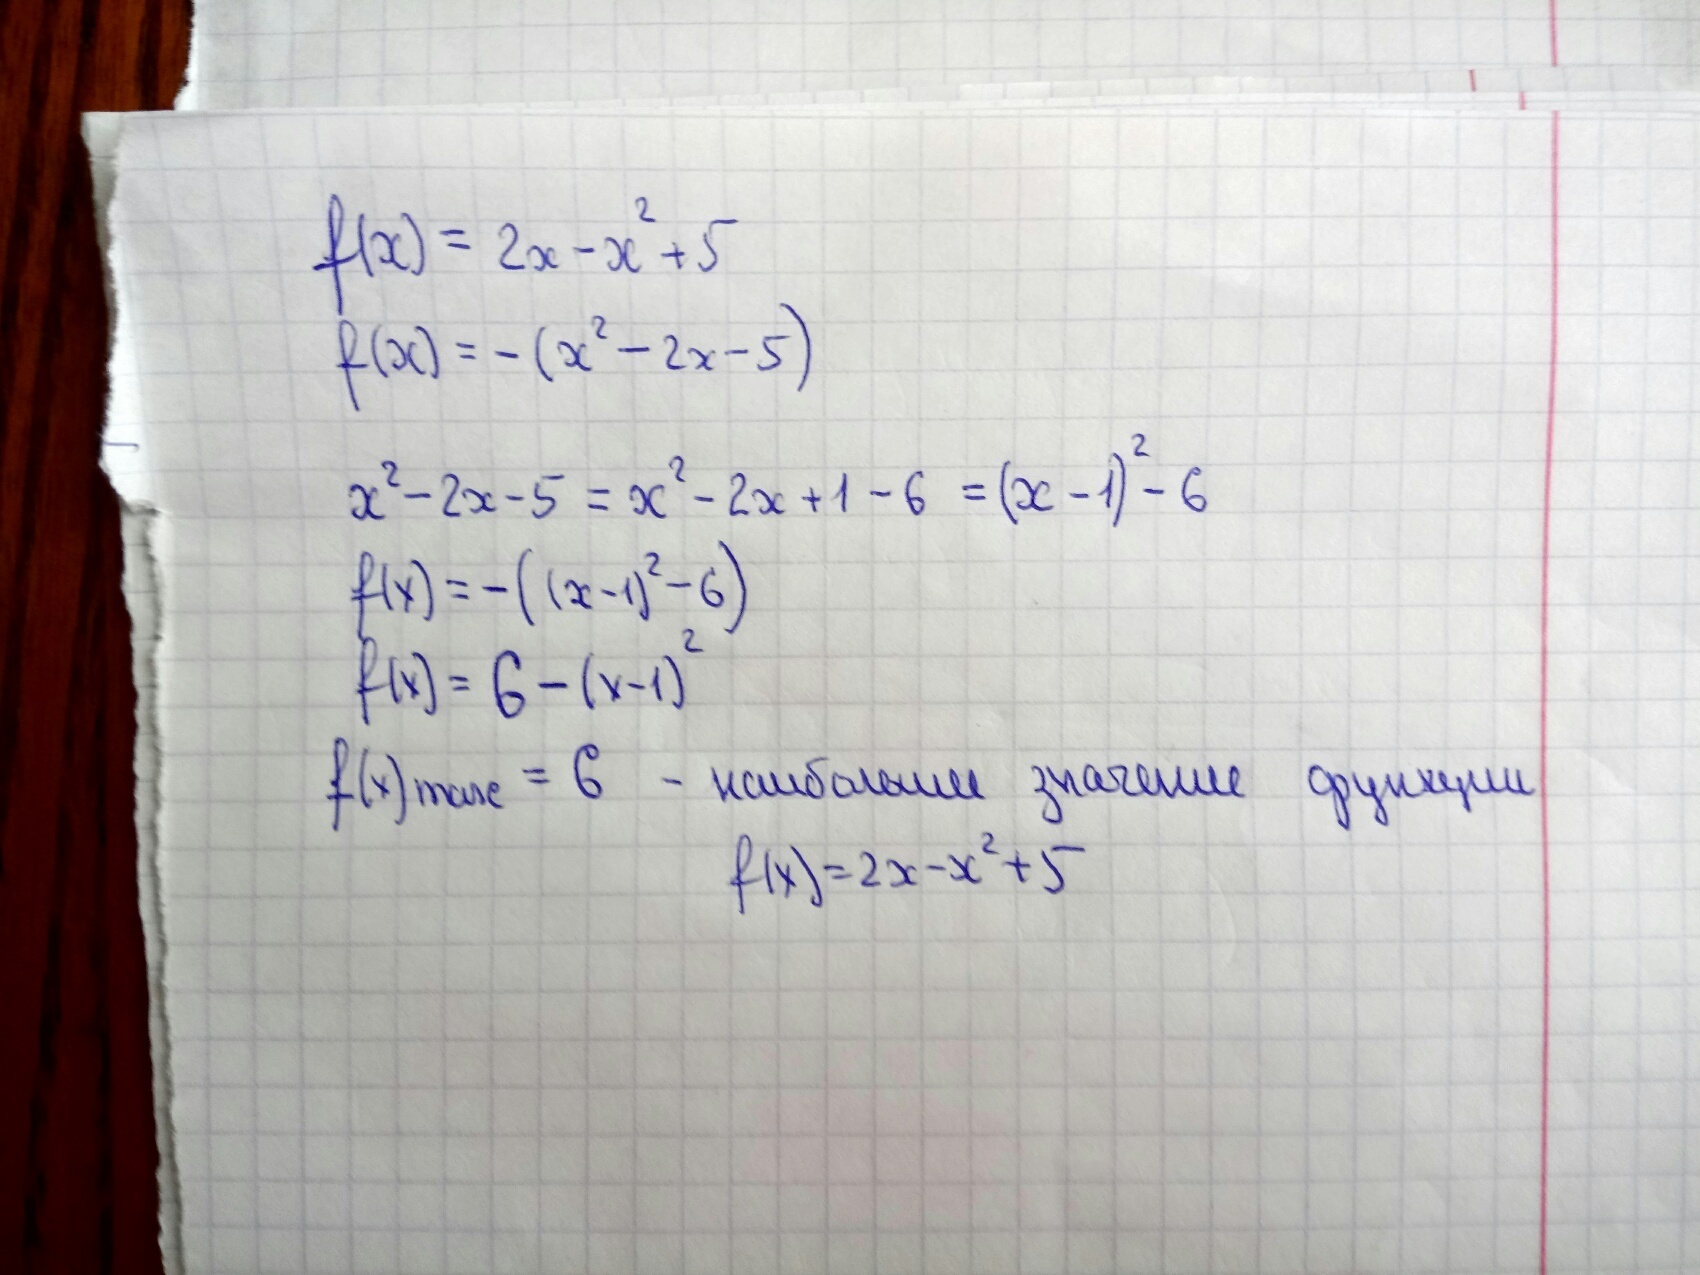 f(x) = 2x - x² + 5
f(x) = - (x² - 2x - 5)
x² - 2x - 5 = x² - 2x + 1 - 6 = (x - 1)² - 6
f(x) = - ((x - 1)² - 6)
f(x) = 6 - (x - 1)²
f(x) max = 6 - наибольшее значение функции
f(x) = 2x - x² + 5